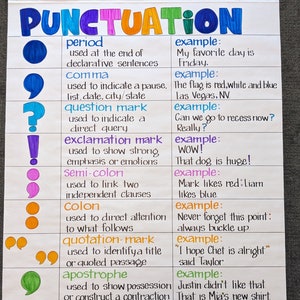 PUNCTUATION
period
used at the end of
declarative sentences
example:
My favorite day is
Friday.
comma
used to indicate a pause,
list, date, city/state
example:
The flag is red, white and blue
Las Vegas, NV
question mark
used to indicate a
direct query
example:
Can we go to recess now?
Really?
exclamation mark
used to show strong
emphasis or emotions
example:
WOW!
That dog is huge!
semi-colon
used to link two
independent clauses
example:
Mark likes red; Liam
likes blue.
colon
used to direct attention
to what follows
example:
Never forget this point:
always buckle up
quotation-mark
used to identify a title
or quoted passage
example:
"I hope Chet is alright"
said Taylor
apostrophe
used to show possession
or construct a contraction
example:
Justin didn't like that.
That is Mia's new shirt